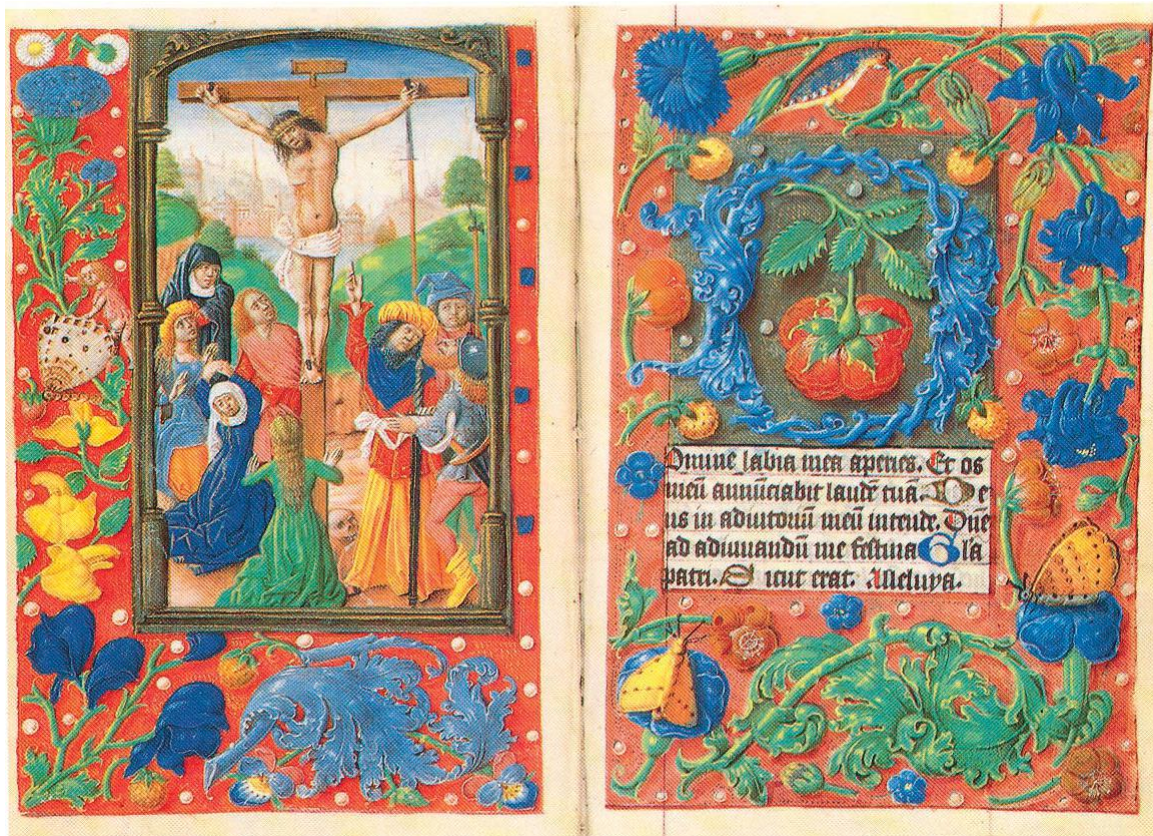 Domine labia mea aperies. Et os
meū annūciabit laudē tuā. De
us in adiutoriū meū intende. Dn̄e
ad adiuuandū me festina Gl̄a
patri. Sicut erat. Alleluya.